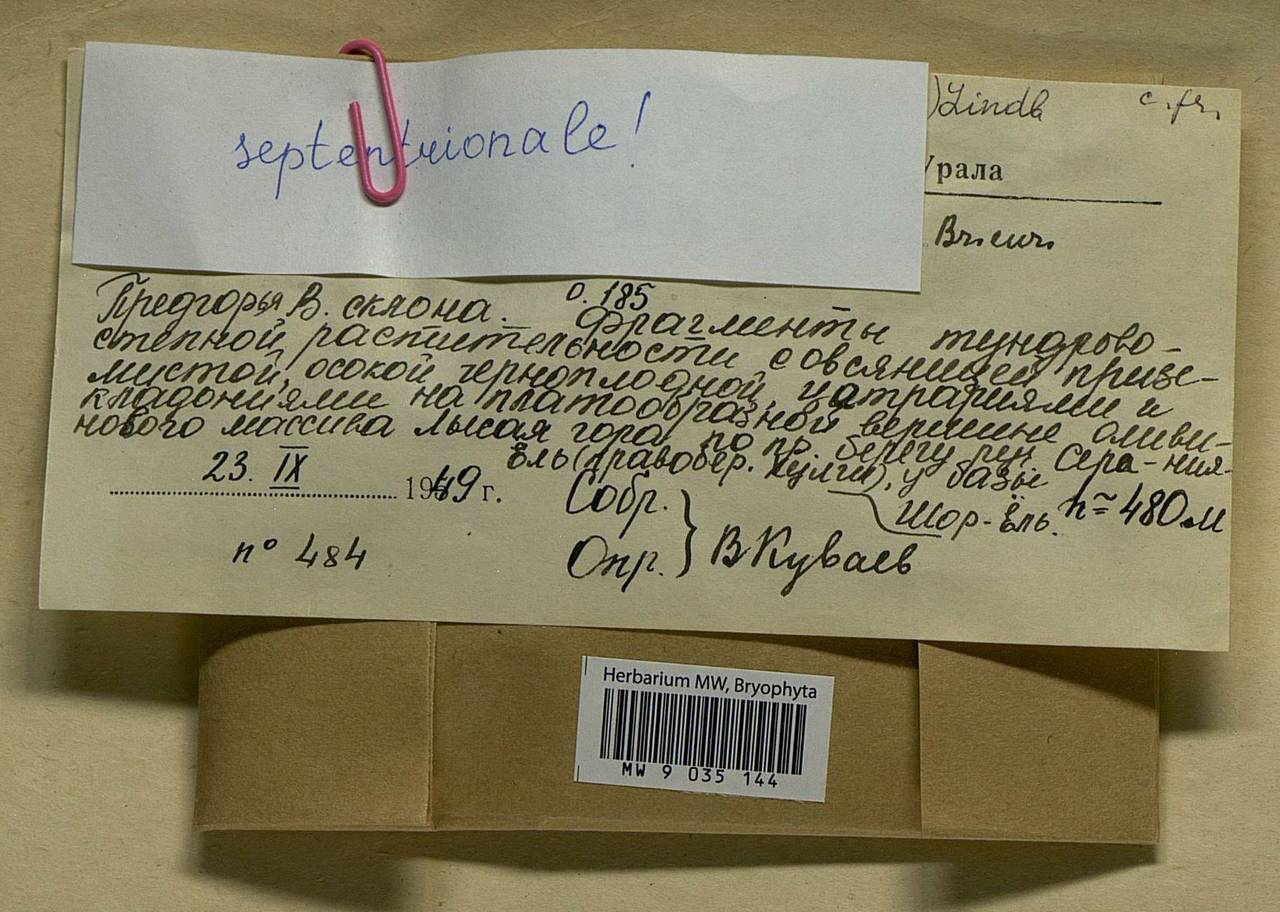 septentrionale!
)Lindb c. fr.
Урала
Br. eur.
Предгорья В. склона. О. 185 Фрагменты тундрово-
степной растительности с овсяницей призе-
мистой, осокой черноплодной, цетрариями и
кладониями на платообразной вершине оливи-
нового массива Лысая гора по пр. берегу реч. Сера-ния-
Ёль (правобер. Хулги), у базы
Шор-Ёль. h≈480м
23. IX 1949 г.
Собр.
Опр. } В Куваев
n° 484
Herbarium MW, Bryophyta
MW 9 035 144